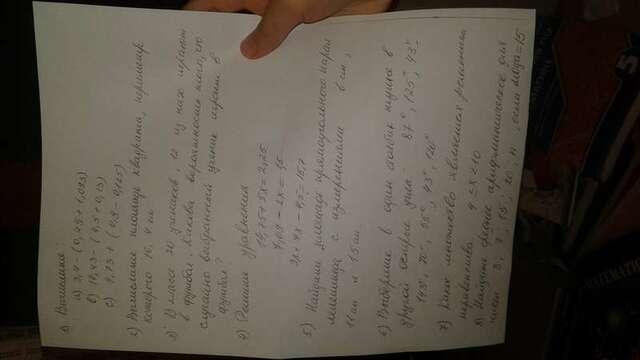 1) Вычислите:
а) 3,4 - (0,45 + 1,083)
в) 18,43 - (4,5 + 0,13)
с) 4,73 + (0,9 - 0,125)
2) Вычислите площадь квадрата, периметр
которого 16,4 см
3) В классе 20 учеников, 12 из них играют
в футбол. Какова вероятность того, что
случайно выбранный ученик играет в
футбол?
4) Решите уравнения
14,75 + 5x = 2,25
7,09 - 2x =
3x + 4x - 4,5 = 15,7
5) Найдите площадь прямоугольного парал
лелепипеда с измерениями 6 см,
11 см и 15 см.
6) Выберите в один столбик тупые в
другой острые углы: 87°, 125°, 43°,
143°, 70°, 55°, 43°, 120°
7) Какое множество является решением
неравенства 4 ≤ x < 10
8) Найдите среднее арифметическое для
чисел 3, 7, 15, 20, n, если мода = 15